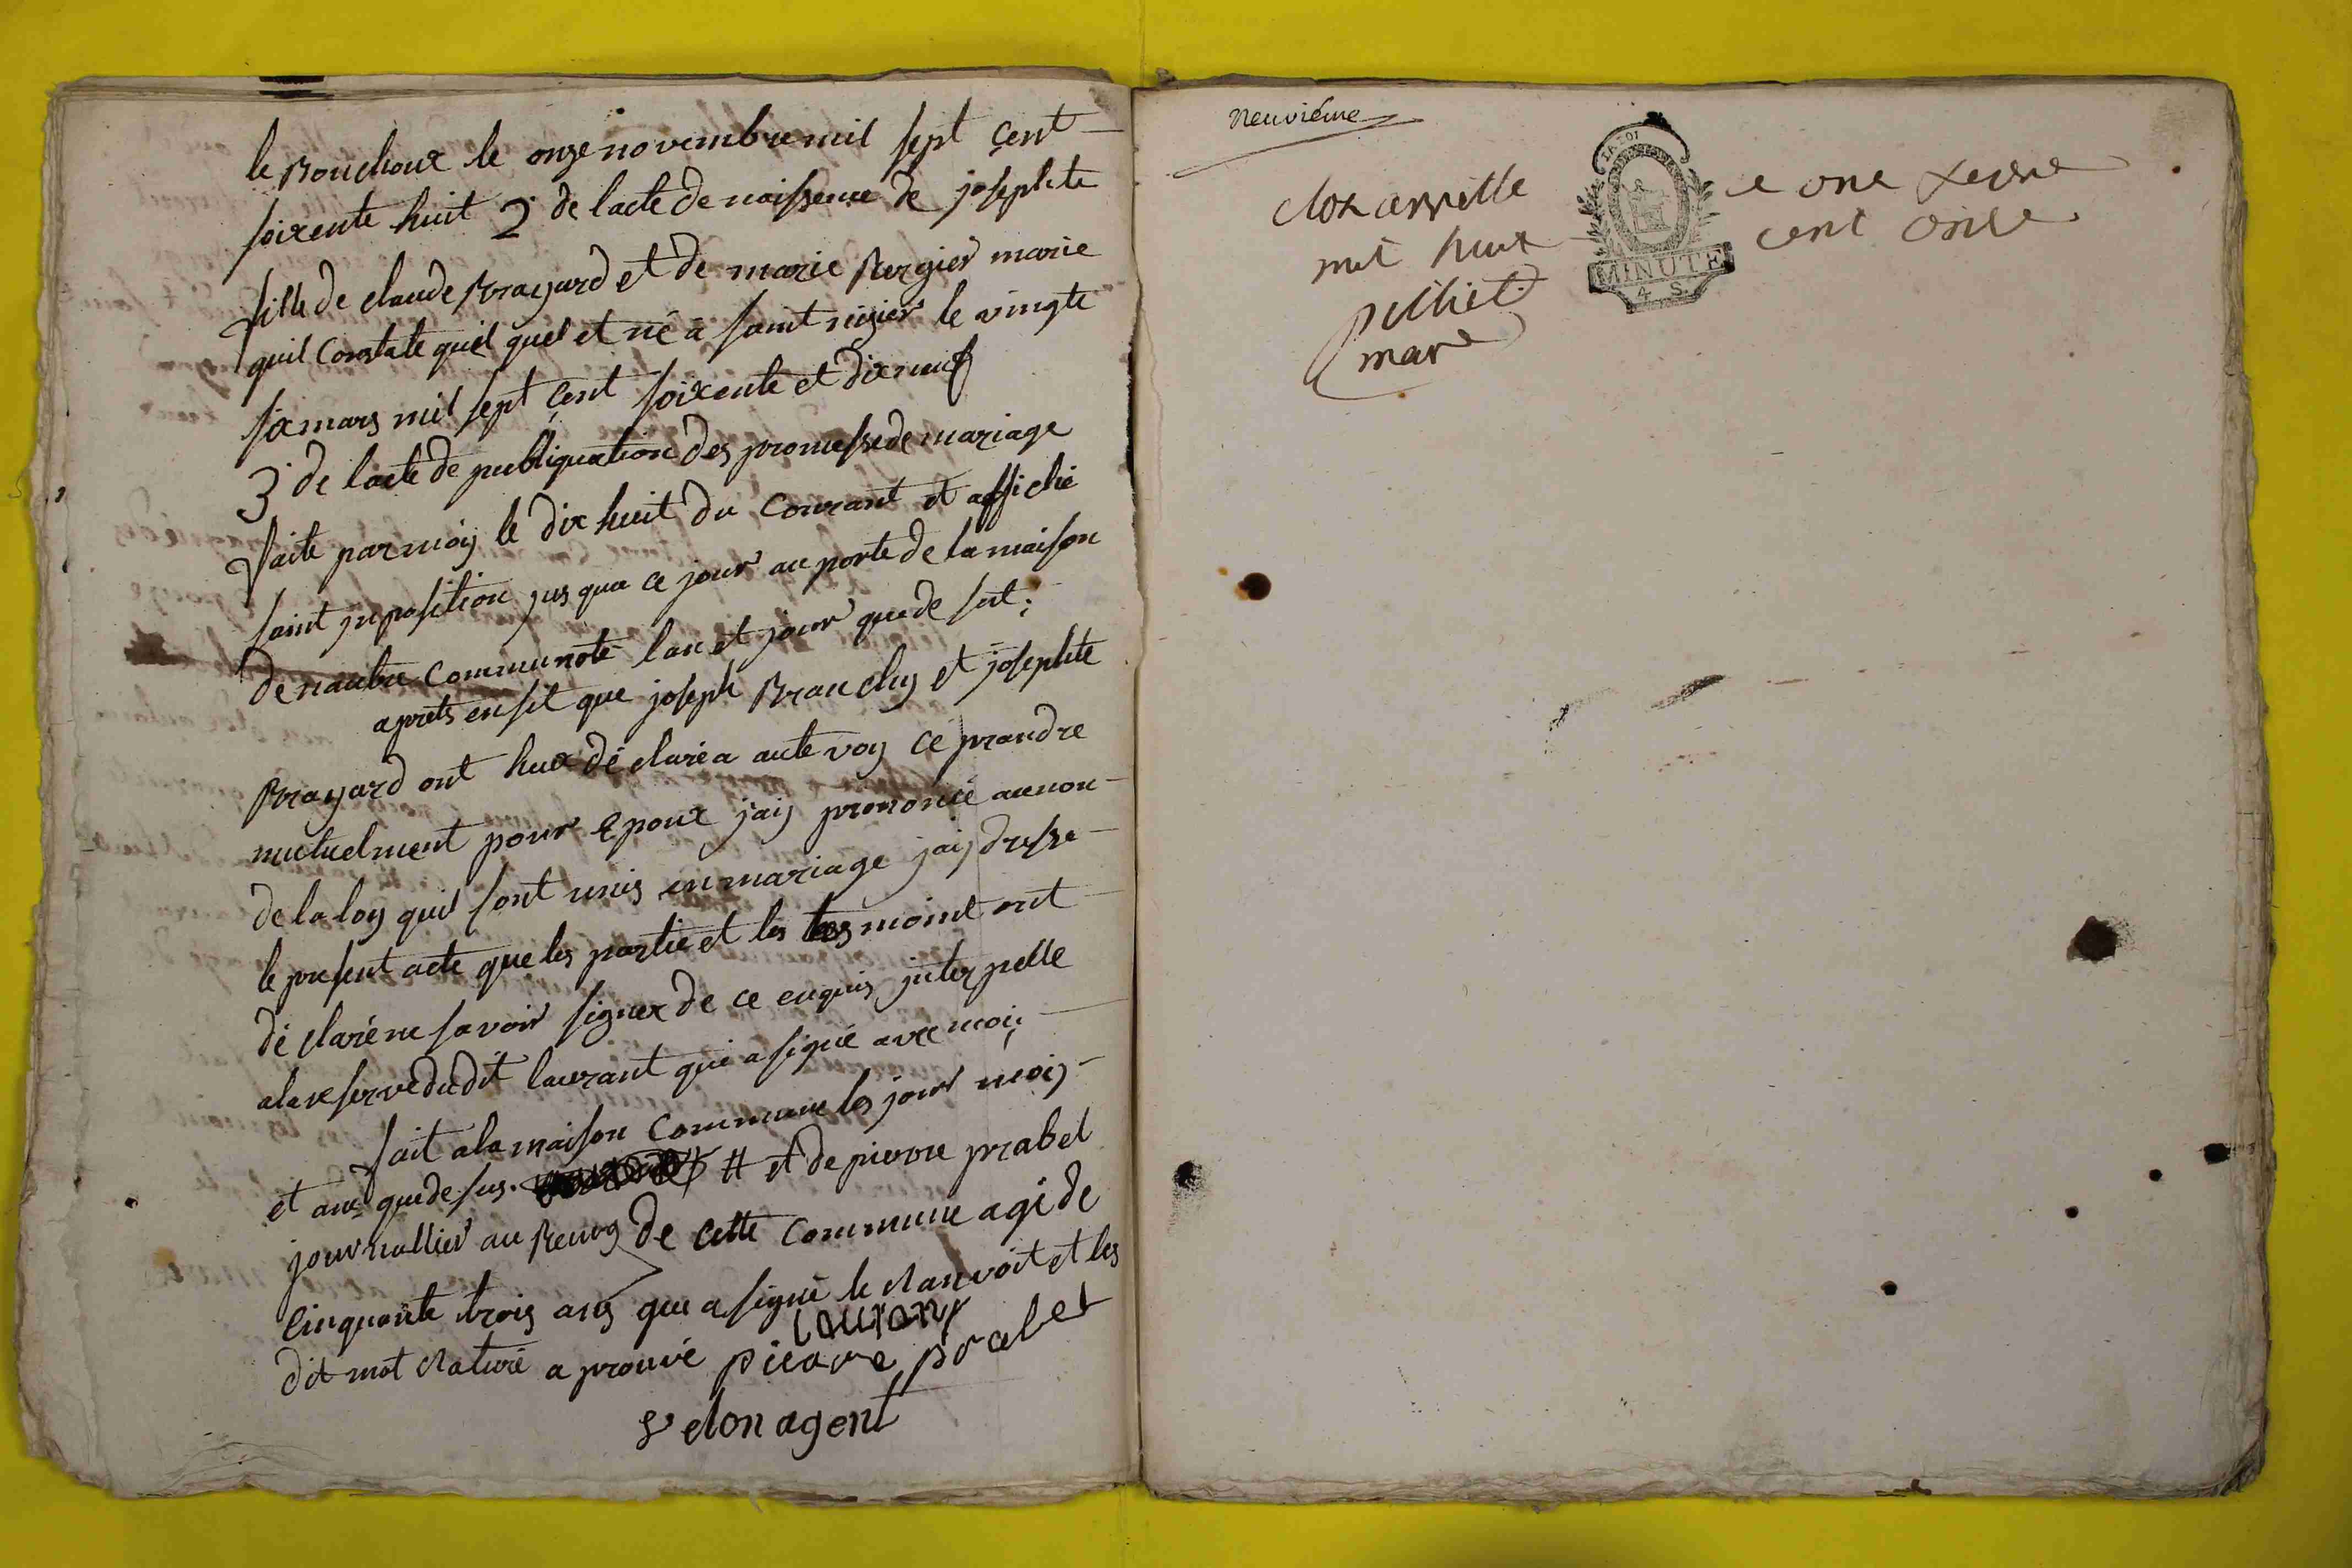 le Bouchoux le onze novembre mil sept cent
soixente huit 2° de lacte de naissence de josephte
fille de claude Brayard et de marie Bergier marié
quil constate quel quel et né a saint nizier le vingte
six mars mil sept cent soixente et dix neuf
3° de lacte de publiquation des promesse de mariage
faite par moij le dix huit du courant et affiché
saint jnposition jus qua ce jour au porte de la maison
de nautre communoté lan et jour que de sut;
aprets en sit que joseph Brauchy et josephte
Brayard ont hux dé claré a aute voy cé prandre
mutuelment pour Epoux jaij prononcé au non
de la loy quil sont unis en mariage jaij dressé
le present acte que les partie et les tesmoint ont
dé claré ne savoir signer de ce enquis jnterpelle
a la reserve du dit laurant qui a signé avec moij
fait a la maison commune les jour moij
et ans que de sus. # et de pierre prabel
journallier au Bourg de cette commune agé de
cinquante trois ans que a signé le et les
dit mot rature a prouvé
laurant
pierre prabel
agent
neuvième
clox arretté
mil huit cent onze
pilliet
MINUTE
4 S.
LA LOI